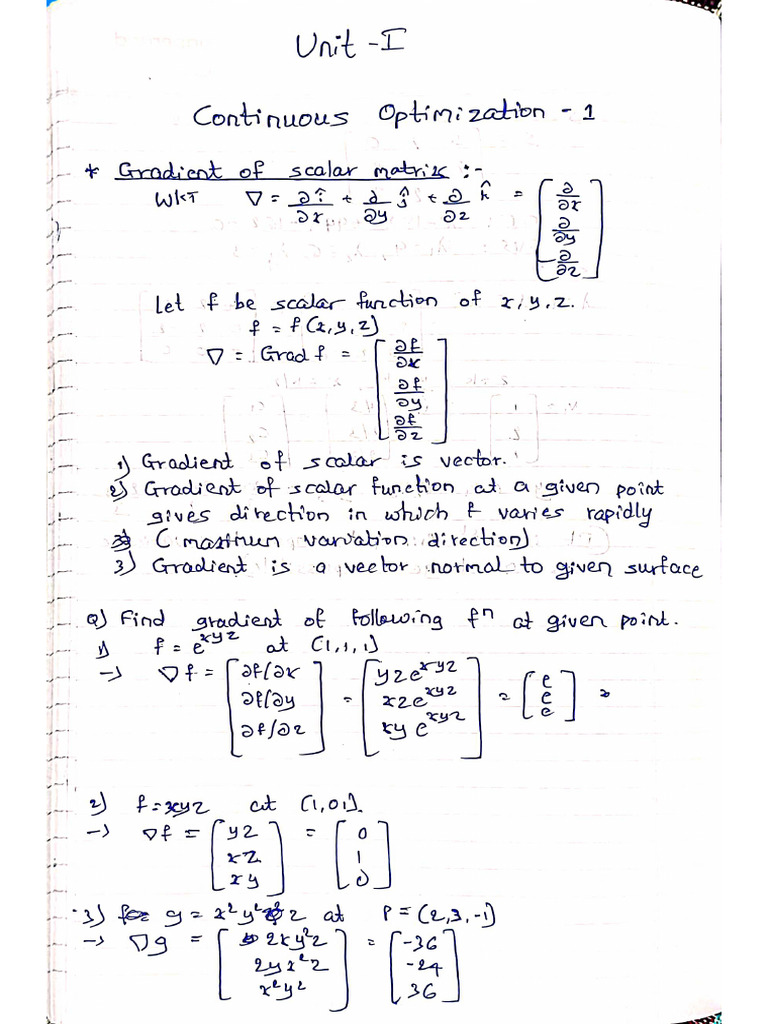 Unit - I
Continuous Optimization - 1
* Gradient of scalar matrix :-
WKT ∇ = ∂/∂x î + ∂/∂y ĵ + ∂/∂z k̂ = [∂/∂x ∂/∂y ∂/∂z]
Let f be scalar function of x, y, z.
f = f(x, y, z)
∇ = Grad f = [∂f/∂x ∂f/∂y ∂f/∂z]
1) Gradient of scalar is vector.
2) Gradient of scalar function at a given point
gives direction in which f varies rapidly
(maximum variation direction)
3) Gradient is a vector normal to given surface
Q) Find gradient of following fⁿ at given point.
1) f = e^xyz at (1,1,1)
→ ∇f = [∂f/∂x ∂f/∂y ∂f/∂z] = [yze^xyz xze^xyz xye^xyz] = [e e e]
2) f = xyz at (1,01).
→ ∇f = [yz xz xy] = [0 1 0]
3) g = x²y²z at P = (2,3,-1)
→ ∇g = [2xy²z 2yx²z x²y²] = [-36 -24 36]